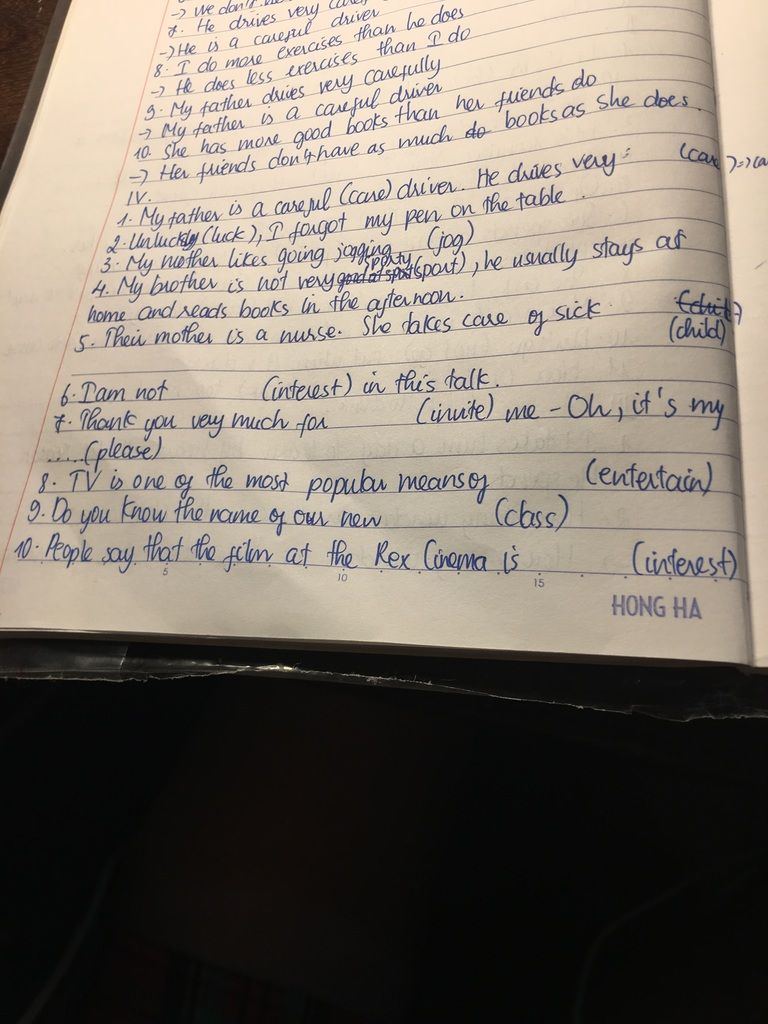 → We don't
7. He drives very
→ He is a careful driver
8. I do more exercises than he does
→ He does less exercises than I do
9. My father drives very carefully
→ My father is a careful driver
10. She has more good books than her friends do
→ Her friends don't have as much do books as she does.
IV.
1. My father is a careful (care) driver. He drives very: (care) => ca
2. Unluckly (luck), I forgot my pen on the table.
3. My mother likes going jogging (jog)
sporty
4. My brother is not very (sport), he usually stays at
home and reads books in the afternoon.
5. Their mother is a nurse. She takes care of sick
(child)
6. I am not (interest) in this talk.
7. Thank you very much for (invite) me - Oh, it's my
..... (please)
8. TV is one of the most popular means of (entertain)
9. Do you know the name of our new (class)
10. People say that the film at the Rex Cinema is (interest)
5 10 15
HONG HA